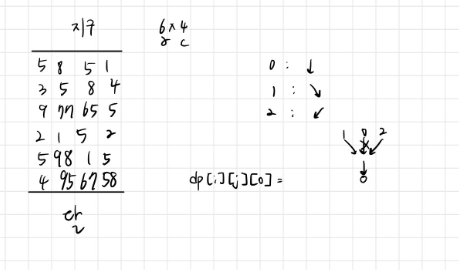 지구
6x4
r c
5 8 5 1
3 5 8 4
9 77 65 5
2 1 5 2
5 98 1 5
4 95 67 58
달
0 : ↓
1 : ↘
2 : ↙
1 0 2
0
dp[i][j][0] =